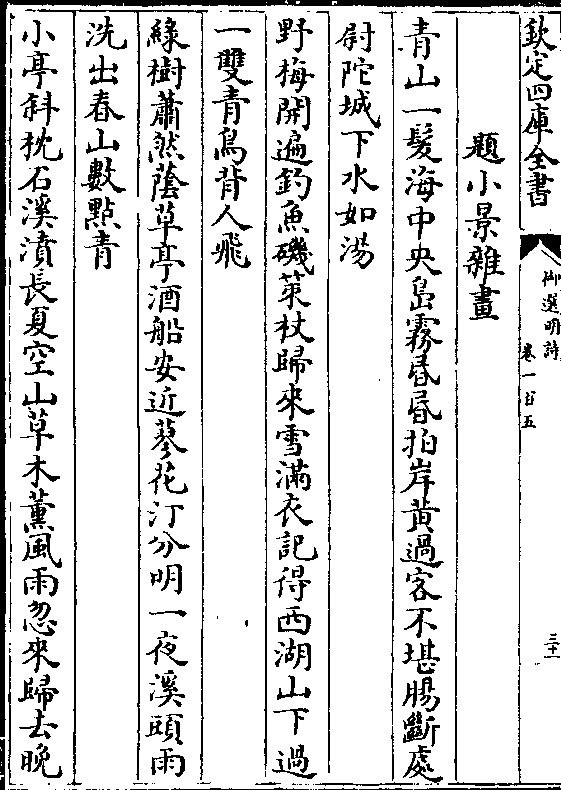 欽定四庫全書
御選明詩
卷一百五
三十一
題小景雜畫
青山一髪海中央島霧昏昏拍岸黄過客不堪腸斷處
尉陀城下水如湯
野梅開遍釣魚磯䇿杖歸來雪滿衣記得西湖山下過
一雙青鳥背人飛
緑樹蕭然蔭草亭酒船安近蓼花汀分明一夜溪頭雨
洗出春山數㸃青
小亭斜枕石溪濆長夏空山草木薫風雨忽來歸去晩